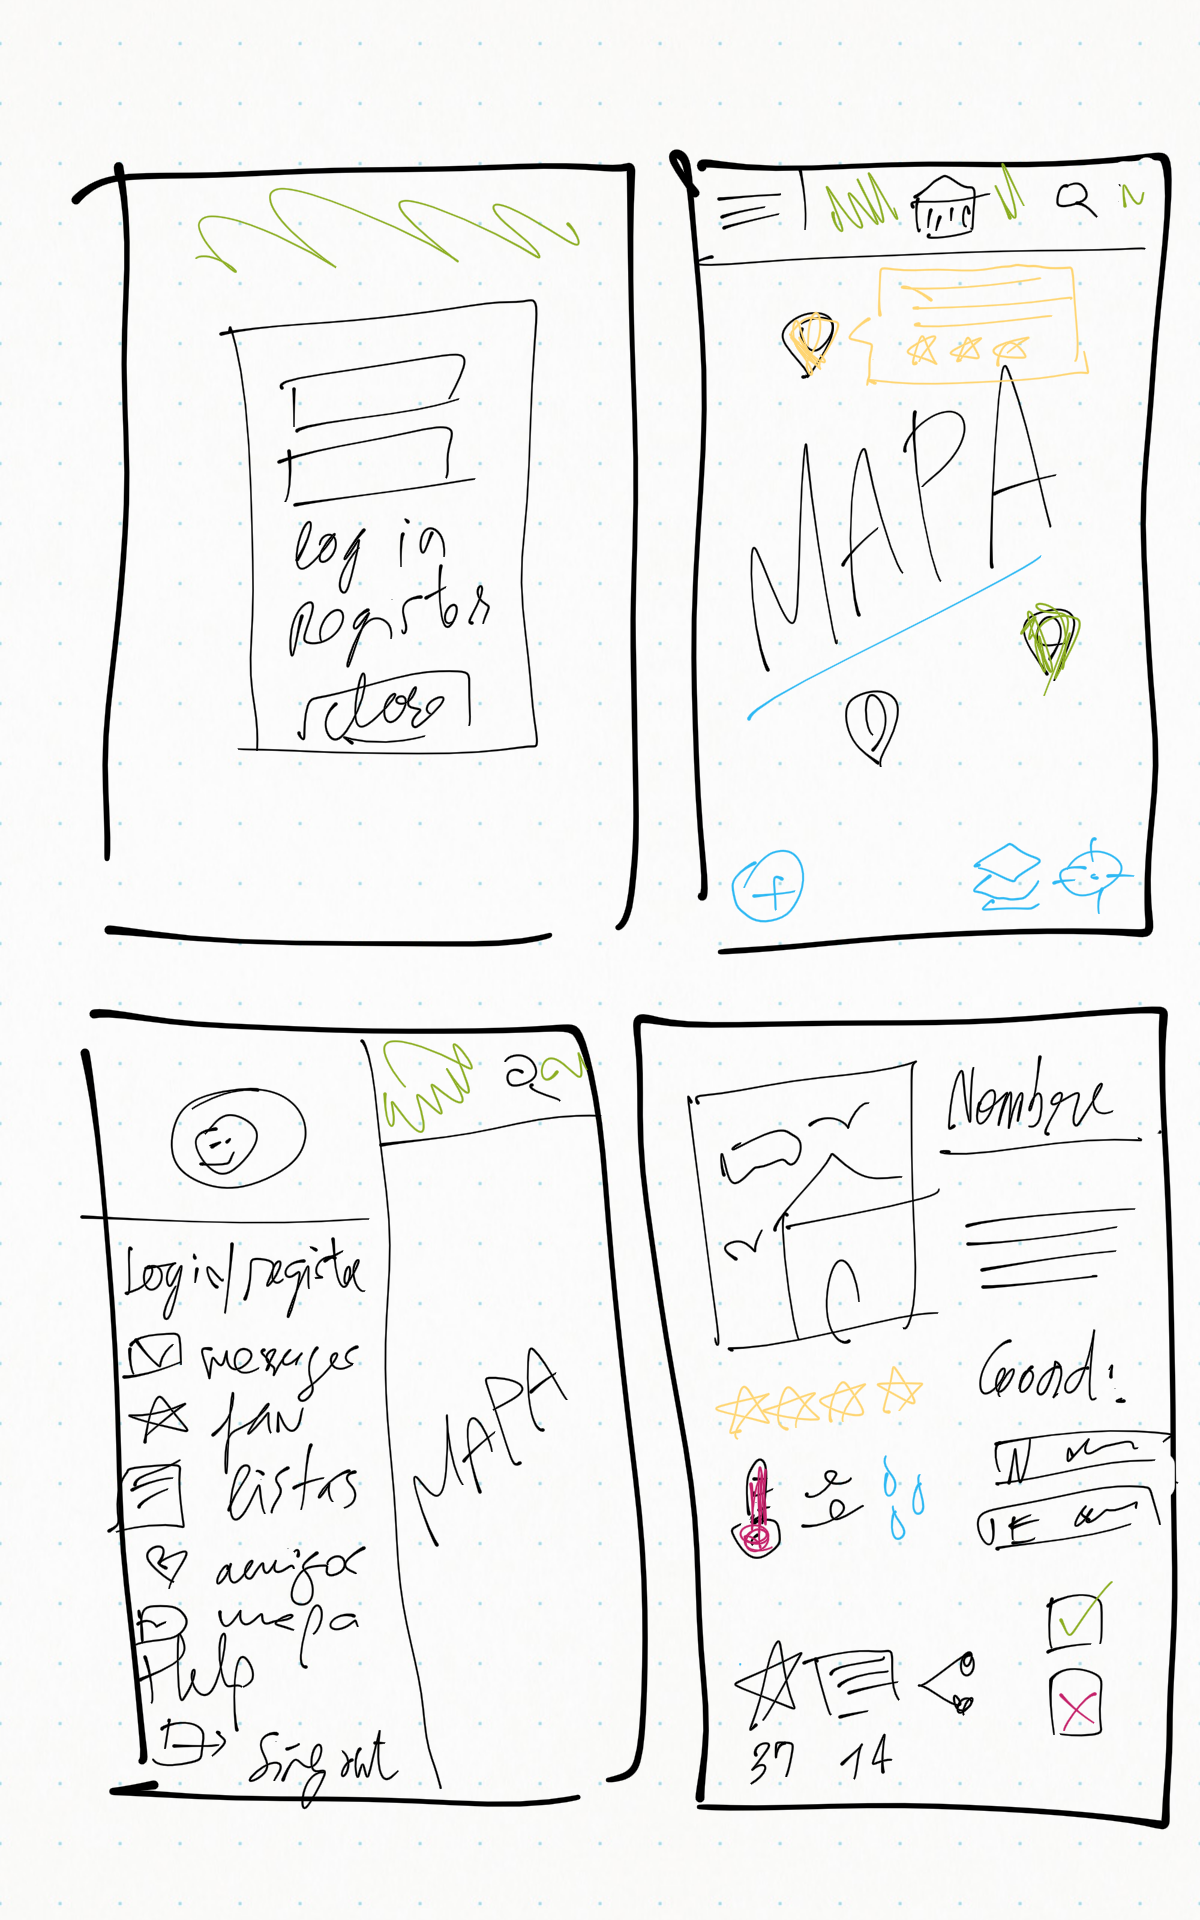 log in
Register
close
MAPA
Login/registe
mesages
fav
listas
amigos
mapa
Help
Sing out
MAPA
Nombre
Coord:
N
37
14